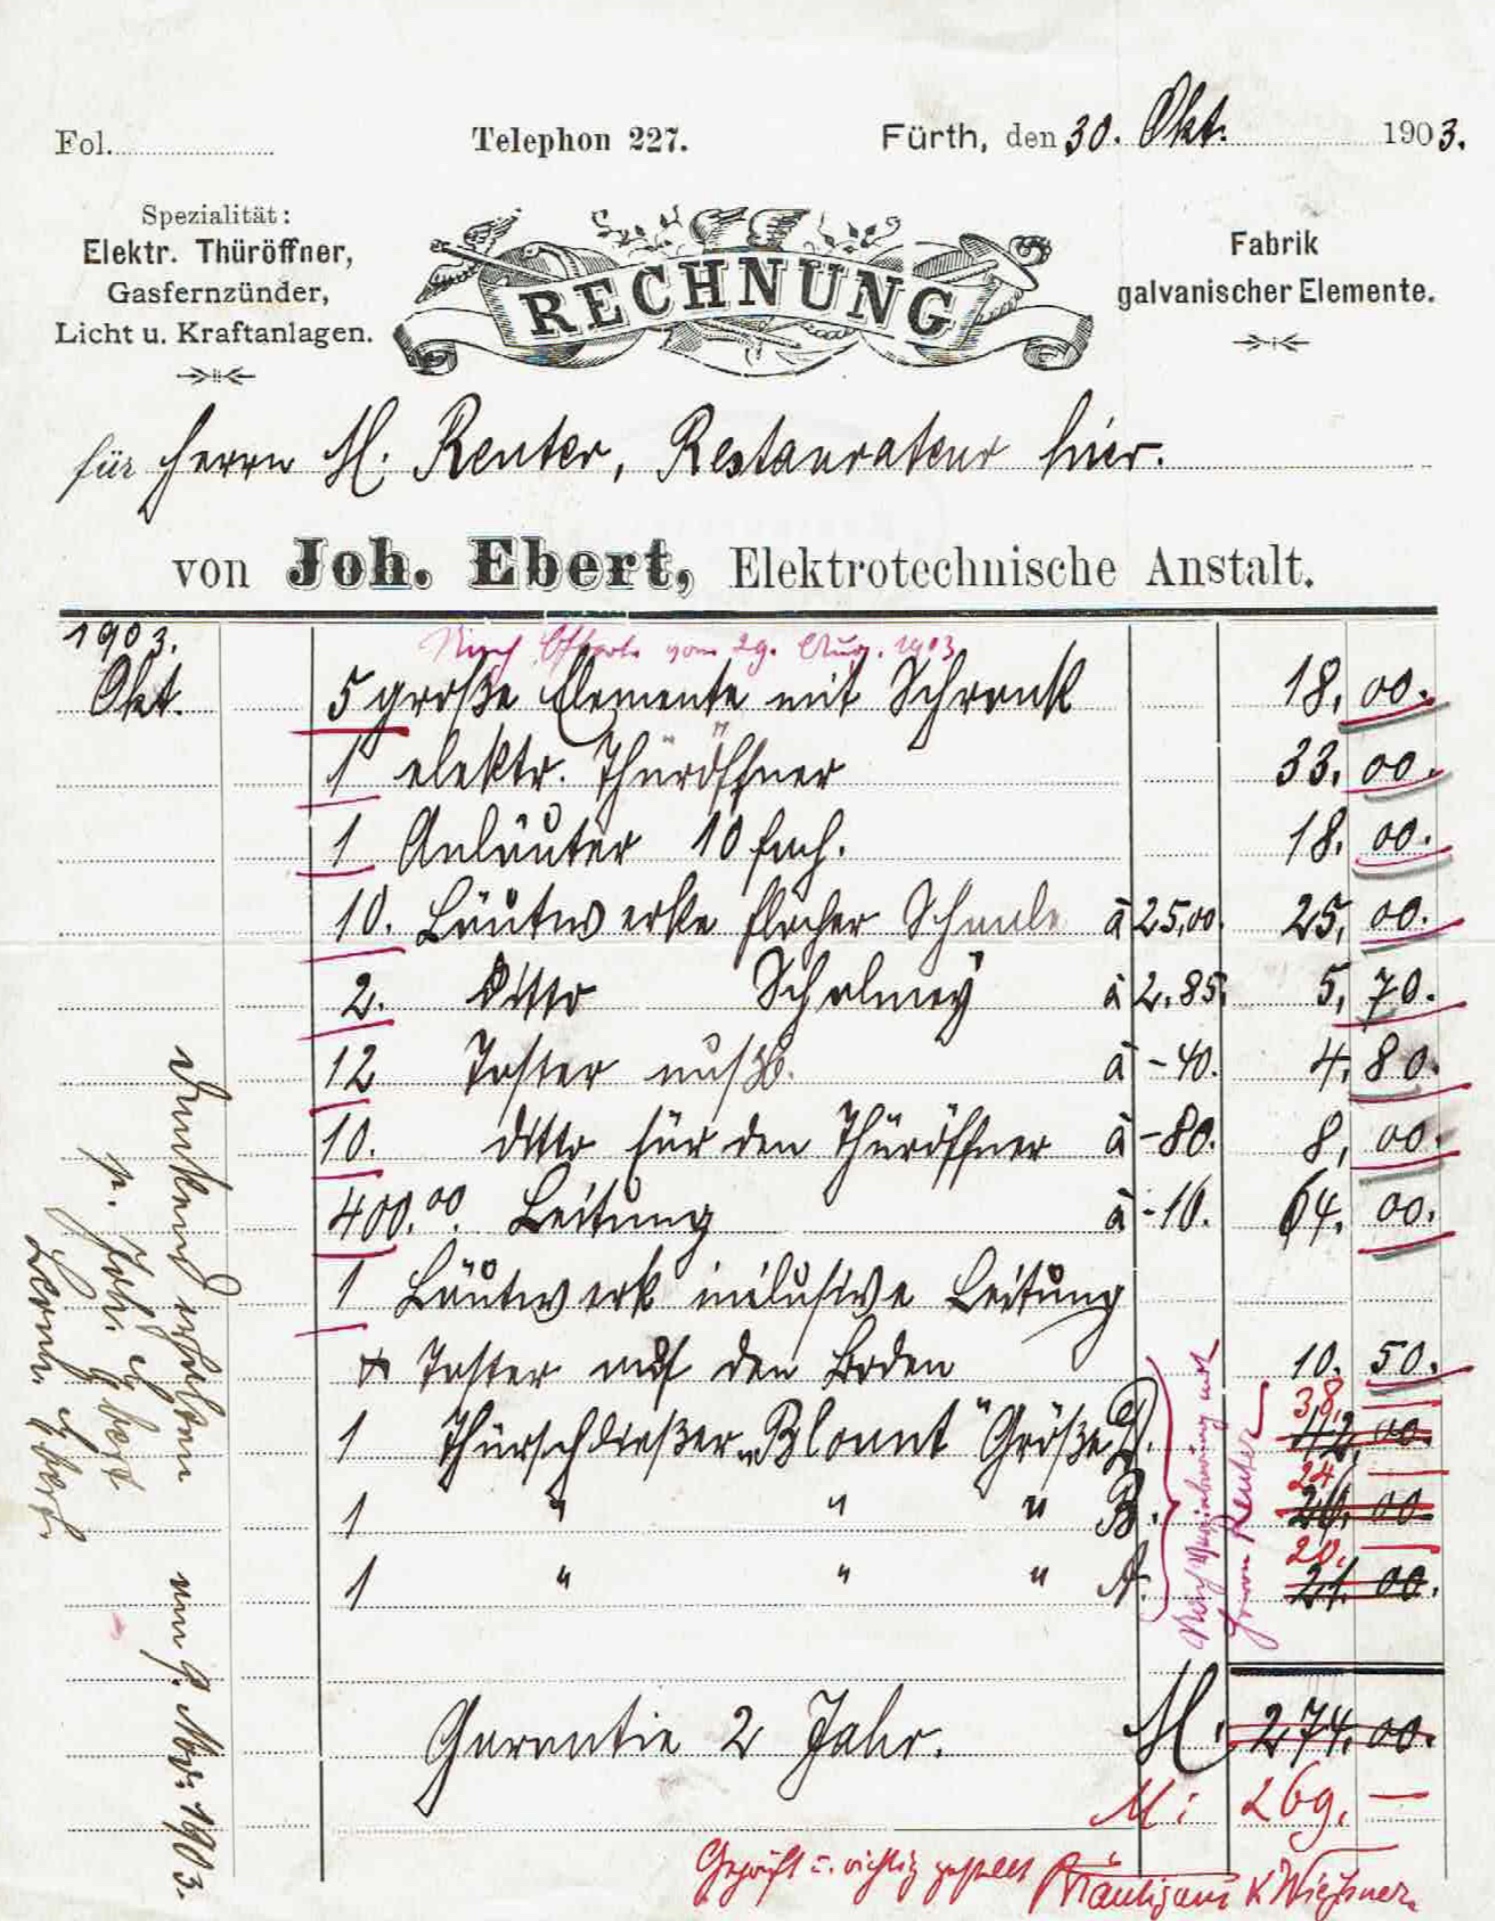 Fol.
Telephon 227.
Fürth, den 30. Okt. 1903.
Spezialität:
Elektr. Thüröffner,
Gasfernzünder,
Licht u. Kraftanlagen.
RECHNUNG
Fabrik
galvanischer Elemente.
für Herrn M. Reuter, Restaurateur hier.
von Joh. Ebert, Elektrotechnische Anstalt.
1903.
Nach Offerte vom 29. Aug. 1903
Okt. 5 große Elemente mit Schrank 18,00.
1 elektr. Thüröffner 33,00.
1 Anläuter 10 fach. 18,00.
10. Läutwerke flacher Schaale à 25,00. 25,00.
2. ditto Schalmey à 2.85. 5,70.
12 Taster nußb. à -40. 4,80.
10. ditto für den Thüröffner à -80. 8,00.
400.00 Leitung à -16. 64,00.
1 Läutwerk inclusive Leitung
Taster auf den Boden 10.50.
1 Thürschließer "Blount" Größe D. 42,00. 38,—
1 " " " B. 00. 24,—
1 " " " A. 21.00. 20,—
Nach Vereinbarung mit
Herrn Reuter
Garantie 2 Jahr. M. 274.00.
M: 269,—
Geprüft u. richtig gestellt Bräutigam K Wießner
Dankend erhalten
p. Joh. Ebert
Ebert.
Nov. 1903.